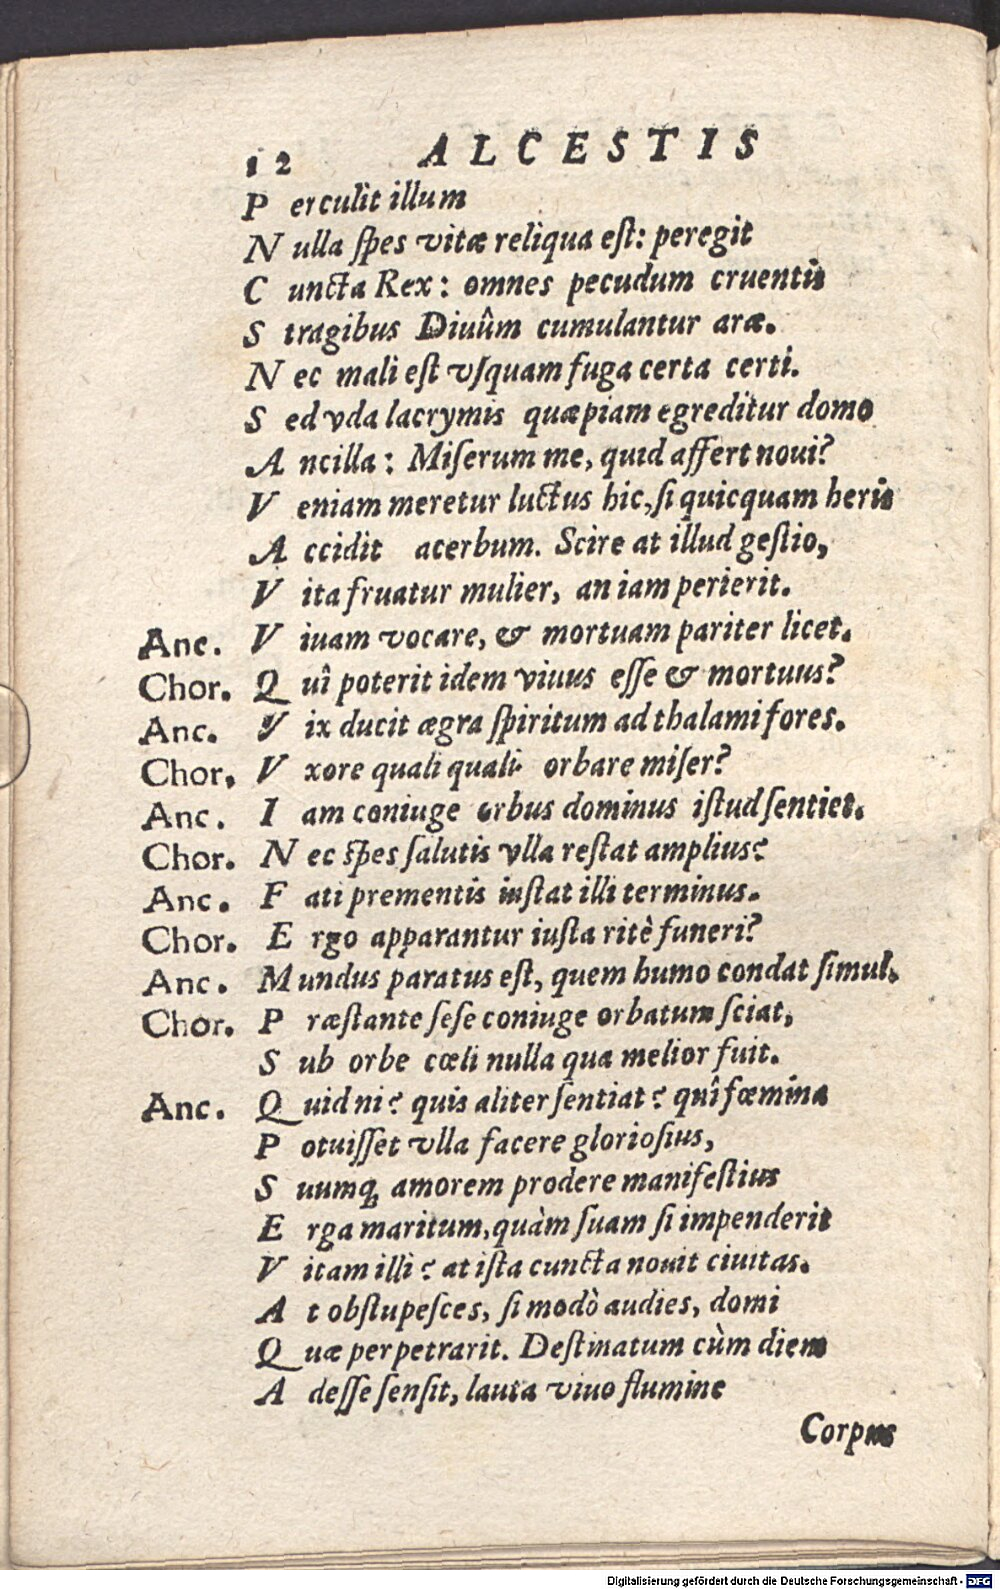 12 ALCESTIS
Perculit illum
Nulla ſpes vitæ reliqua eſt: peregit
Cuncta Rex: omnes pecudum cruentis
Stragibus Diuûm cumulantur aræ.
Nec mali eſt vſquam fuga certa certi.
Sed vda lacrymis quæpiam egreditur domo
Ancilla: Miſerum me, quid affert noui?
Veniam meretur luctus hic, ſi quicquam heris
Accidit acerbum. Scire at illud geſtio,
Vita fruatur mulier, an iam perierit.
Anc. Viuam vocare, & mortuam pariter licet.
Chor. Quî poterit idem viuus eſſe & mortuus?
Anc. Vix ducit ægra ſpiritum ad thalami fores.
Chor. Vxore quali quali orbare miſer?
Anc. Iam coniuge orbus dominus iſtud ſentiet.
Chor. Nec ſpes ſalutis vlla reſtat amplius?
Anc. Fati prementis inſtat illi terminus.
Chor. Ergo apparantur iuſta ritè funeri?
Anc. Mundus paratus eſt, quem humo condat ſimul.
Chor. Præſtante ſeſe coniuge orbatum ſciat,
Sub orbe cœli nulla qua melior fuit.
Anc. Quid ni? quis aliter ſentiat? quî fœmina
Potuiſſet vlla facere glorioſius,
Suumq; amorem prodere manifeſtius
Erga maritum, quàm ſuam ſi impenderit
Vitam illi? at iſta cuncta nouit ciuitas.
At obſtupeſces, ſi modò audies, domi
Quæ perpetrarit. Deſtinatum cùm diem
Adeſſe ſenſit, lauta viuo flumine
Corpus
Digitalisierung gefördert durch die Deutsche Forschungsgemeinschaft - DFG